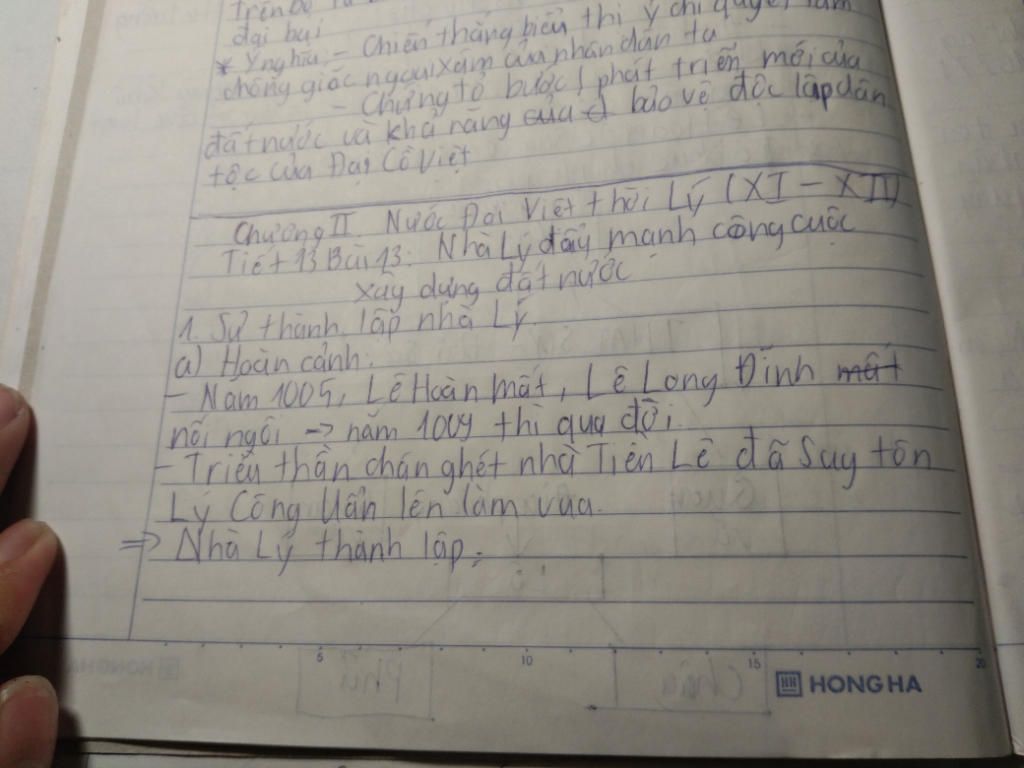 Trên bộ
đại bại
* Ý nghĩa: - Chiến thắng biểu thị ý chí quyết tâm
chống giặc ngoại xâm của nhân dân ta
- Chứng tỏ bước phát triển mới của
đất nước và khả năng của bảo vệ độc lập dân
tộc của Đại Cồ Việt
Chương II Nước Đại Việt thời Lý (XI - XII)
Tiết 13 Bài 13: Nhà Lý đẩy mạnh công cuộc
xây dựng đất nước
1. Sự thành lập nhà Lý
a) Hoàn cảnh:
- Năm 1005, Lê Hoàn mất, Lê Long Đĩnh mất
nối ngôi → năm 1009 thì qua đời.
- Triều thần chán ghét nhà Tiền Lê đã Suy tôn
Lý Công Uẩn lên làm vua.
⇒ Nhà Lý thành lập.
5 10 15 20
HH HONG HA